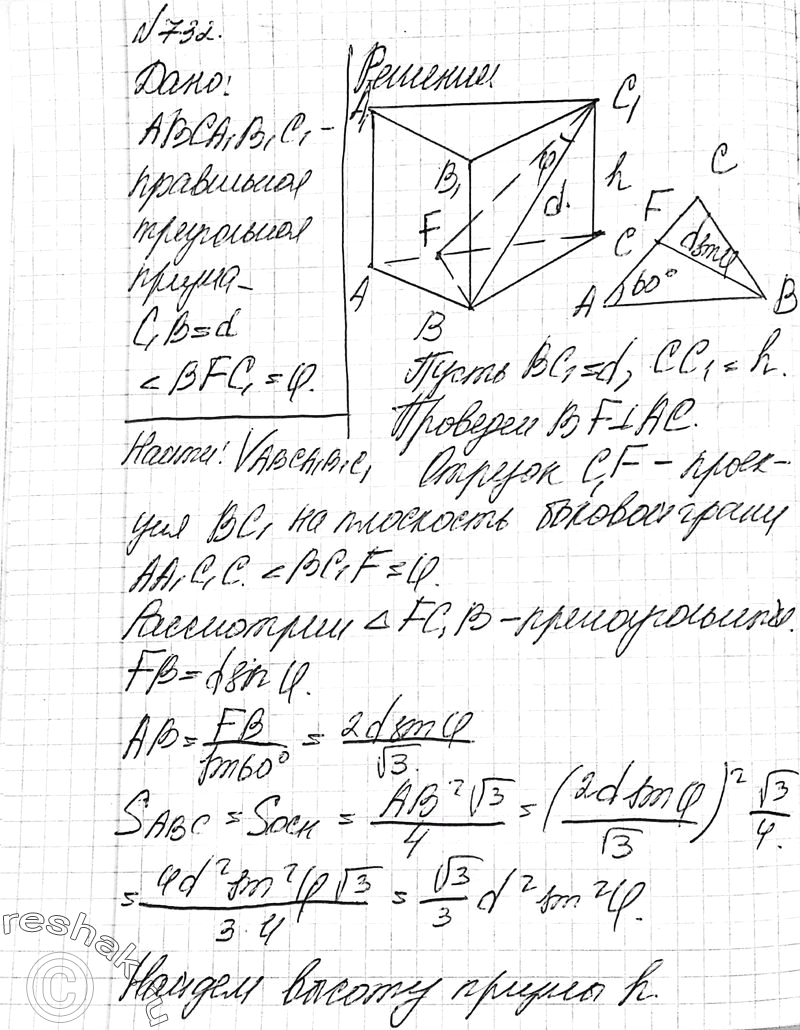 №732.
Дано:
ABCA₁B₁C₁ –
правильная
треугольная
призма
C₁B = d
∠BFC₁ = φ.
Найти: V_ABCA₁B₁C₁
Решение
A₁ C₁
B₁ φ h
F d.
A C
B
C
F
d sin φ
A 60° B
Пусть BC₁ = d, CC₁ = h.
Проведем BF ⊥ AC.
Отрезок C₁F – проек-
ция BC₁ на плоскость боковой грани
AA₁C₁C. ∠BC₁F = φ.
Рассмотрим △FC₁B – прямоугольный.
FB = d sin φ.
AB = FB/sin 60° = 2d sin φ/√3
S_ABC = S_осн = AB²√3/4 = (2d sin φ/√3)² √3/4.
= 4d² sin² φ √3/3·4 = √3/3 d² sin² φ.
Найдем высоту призмы h.
reshak.ru
©